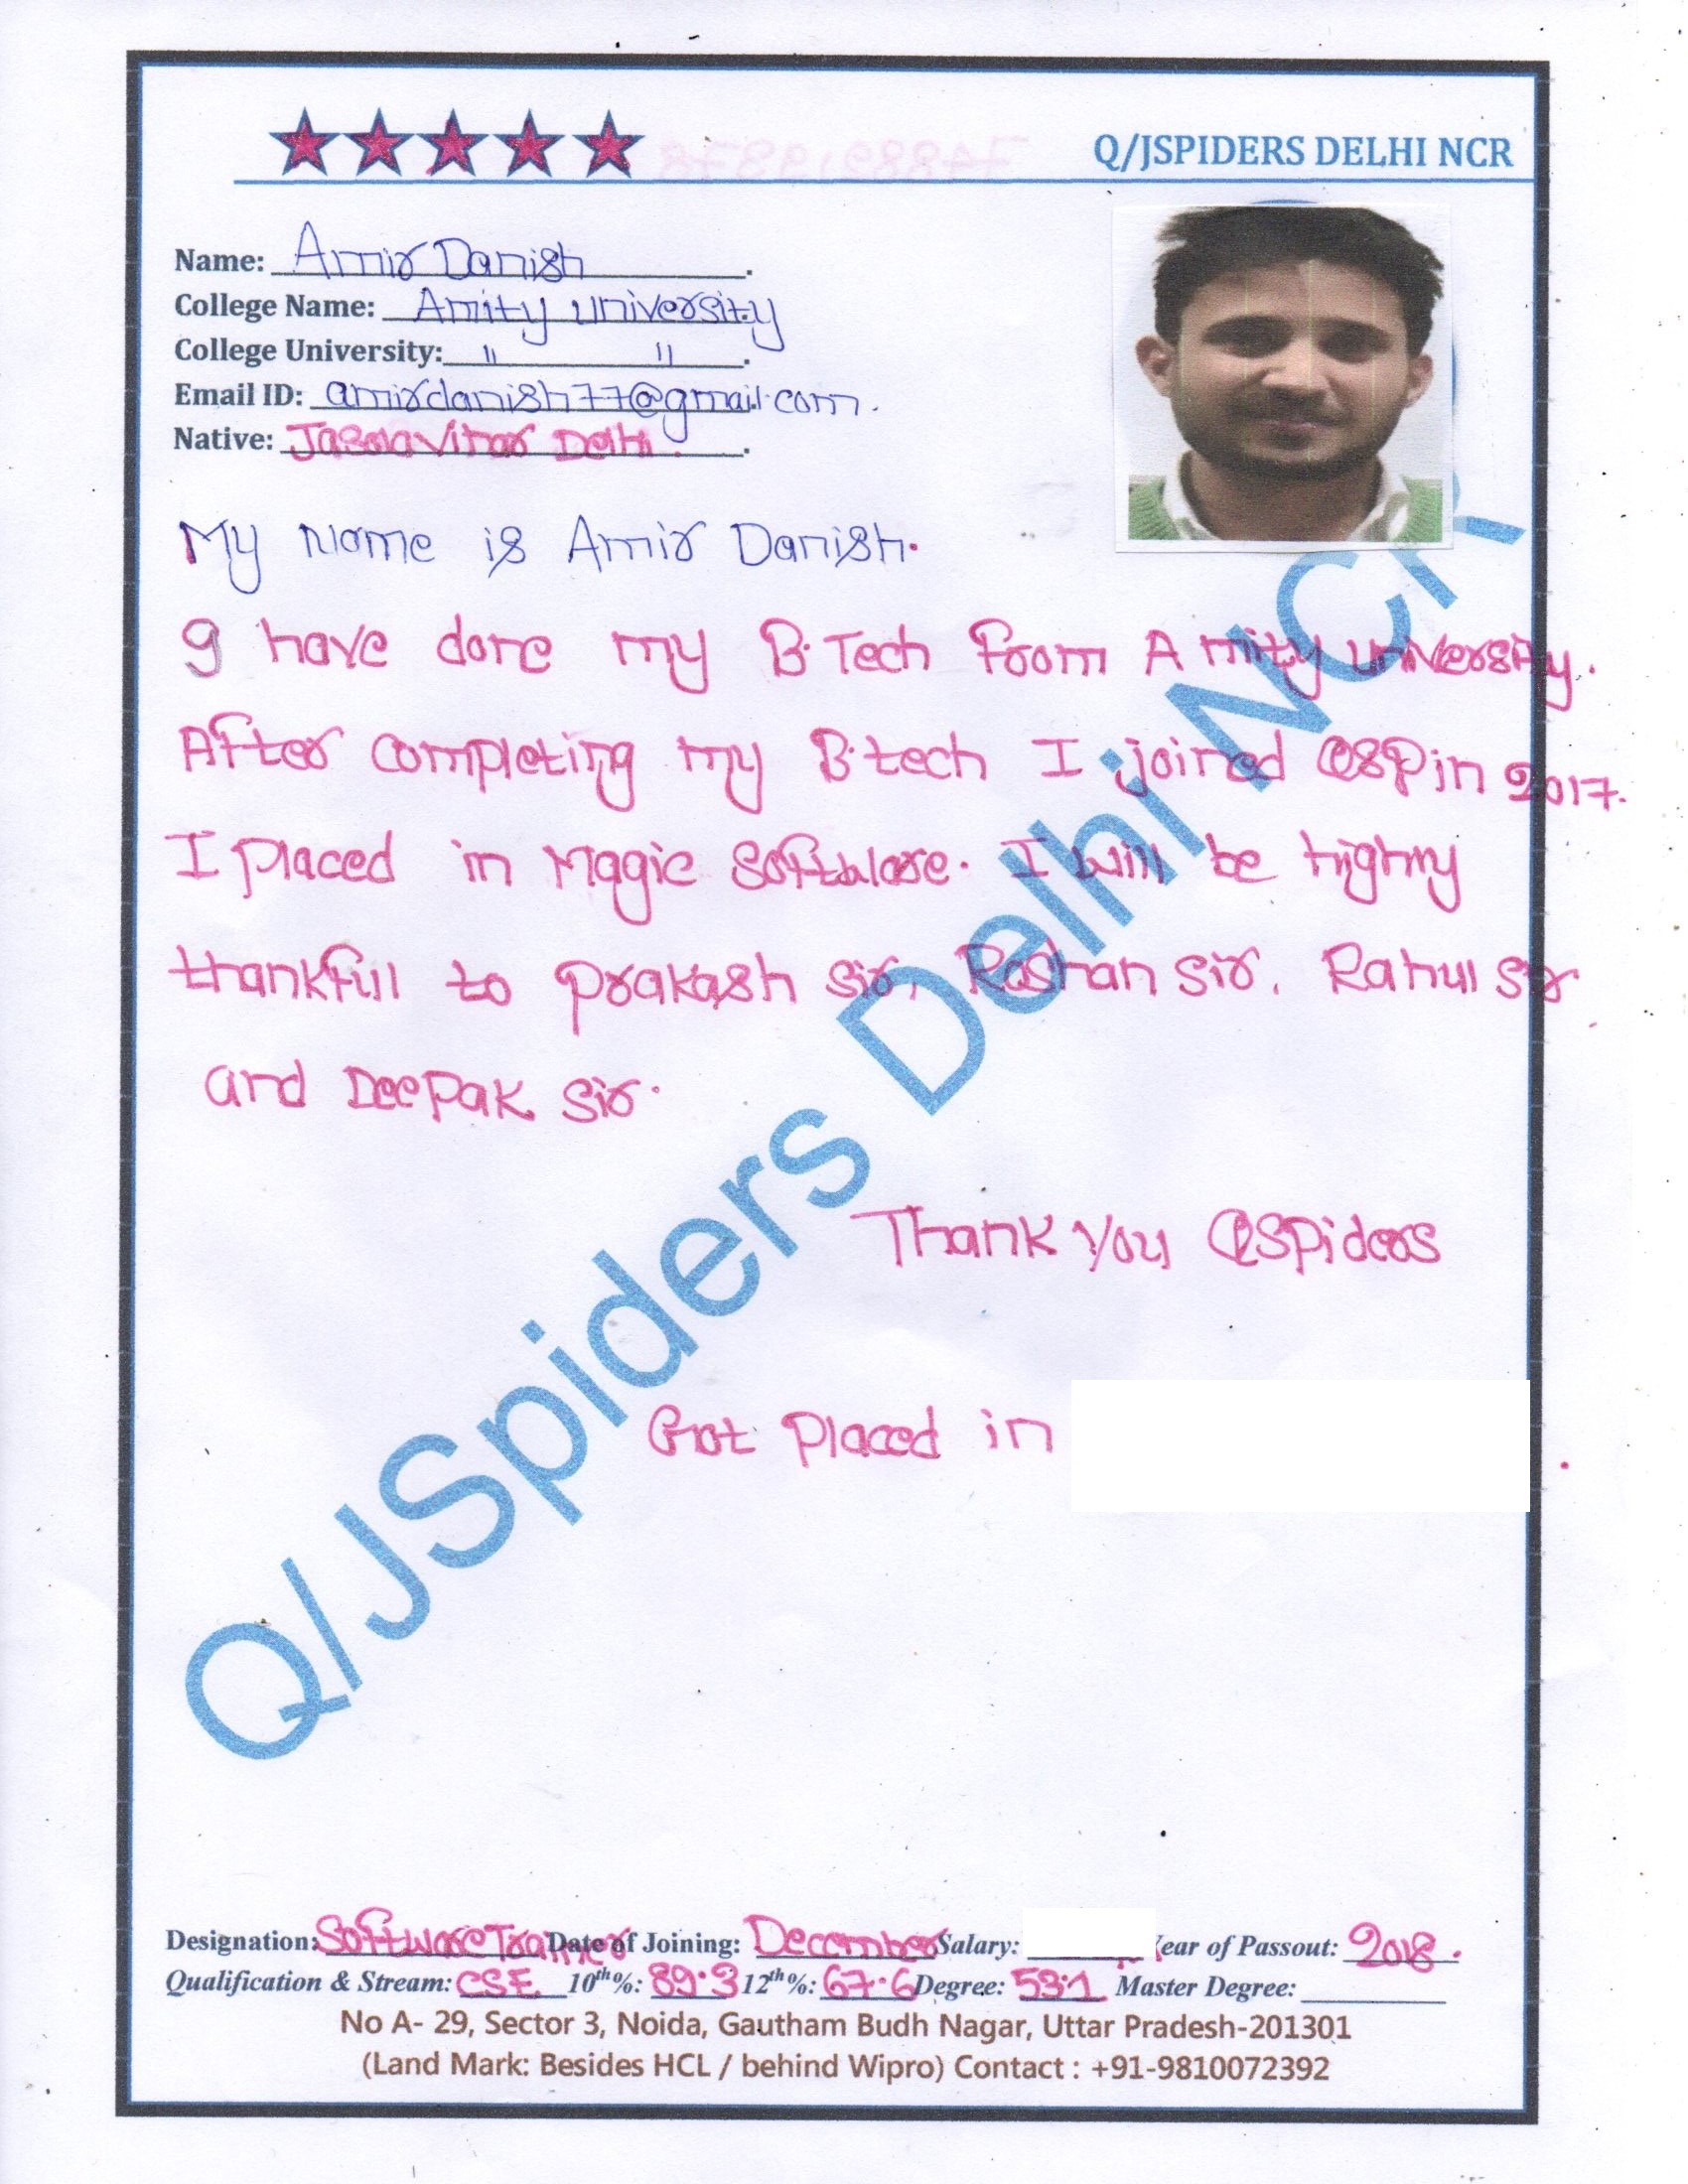 Q/JSPIDERS DELHI NCR
Name: Amir Danish.
College Name: Amity University
College University: " ".
Email ID: amirdanish77@gmail.com.
Native: Jasola Vihar Delhi.
My Name is Amir Danish.
I have done my B.Tech From Amity University.
After completing my B.tech I joined QSP in 2017.
I placed in Magic Software. I will be highly
thankful to Prakash sir, Roshan sir, Rahul sir
and Deepak sir.
Thank you QSPiders
Got Placed in
Q/JSpiders Delhi NCR
Designation: Software Trainer Date of Joining: December Salary: Year of Passout: 2018.
Qualification & Stream: CSE 10th%: 89.3 12th%: 67.6 Degree: 53.1 Master Degree:
No A- 29, Sector 3, Noida, Gautham Budh Nagar, Uttar Pradesh-201301
(Land Mark: Besides HCL / behind Wipro) Contact : +91-9810072392